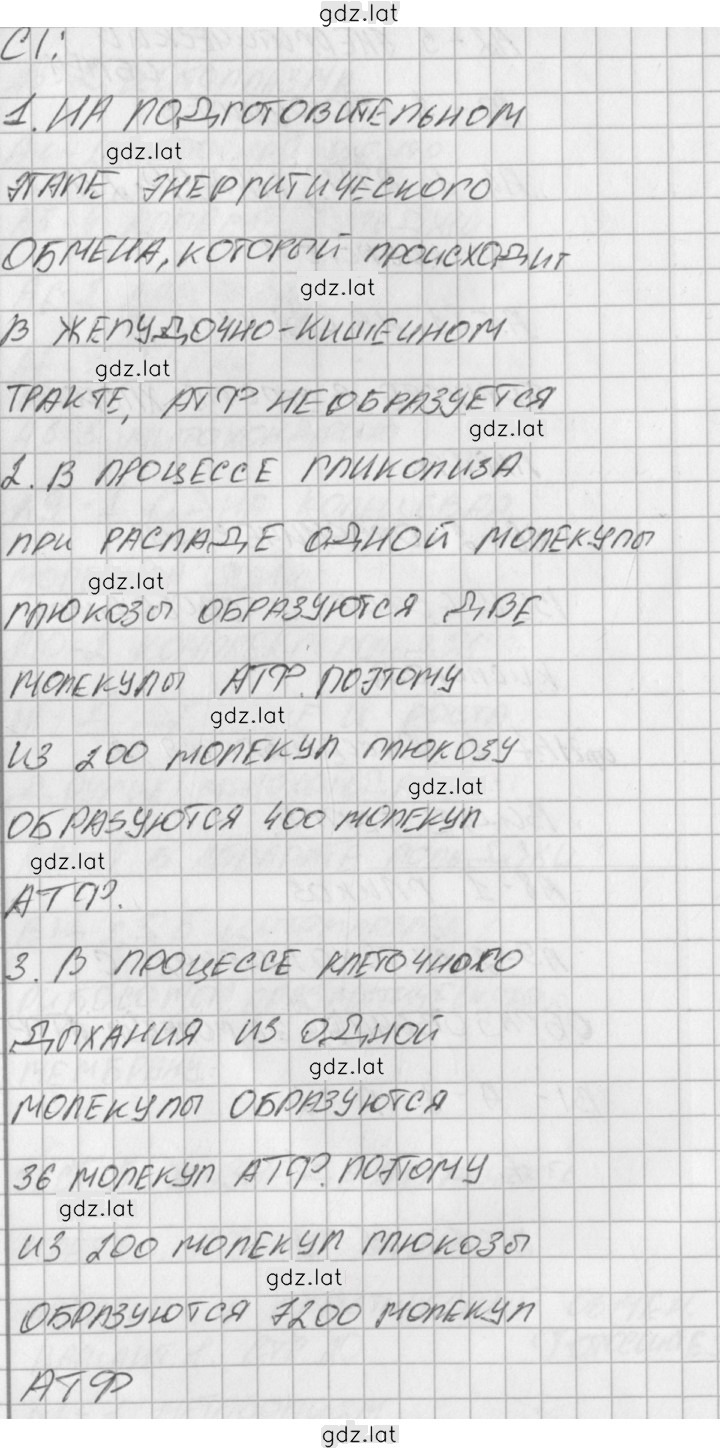 gdz.lat
С1:
1. НА ПОДГОТОВИТЕЛЬНОМ
gdz.lat
ЭТАПЕ ЭНЕРГИТИЧЕСКОГО
ОБМЕНА, КОТОРЫЙ ПРОИСХОДИТ
gdz.lat
В ЖЕЛУДОЧНО-КИШЕЧНОМ
gdz.lat
ТРАКТЕ, АТФ НЕ ОБРАЗУЕТСЯ
gdz.lat
2. В ПРОЦЕССЕ ГЛИКОЛИЗА
ПРИ РАСПАДЕ ОДНОЙ МОЛЕКУЛЫ
gdz.lat
ГЛЮКОЗЫ ОБРАЗУЮТСЯ ДВЕ
МОЛЕКУЛЫ АТФ. ПОЭТОМУ
gdz.lat
ИЗ 200 МОЛЕКУЛ ГЛЮКОЗУ
gdz.lat
ОБРАЗУЮТСЯ 400 МОЛЕКУЛ
gdz.lat
АТФ.
3. В ПРОЦЕССЕ КЛЕТОЧНОГО
ДЫХАНИЯ ИЗ ОДНОЙ
gdz.lat
МОЛЕКУЛЫ ОБРАЗУЮТСЯ
36 МОЛЕКУЛ АТФ. ПОЭТОМУ
gdz.lat
ИЗ 200 МОЛЕКУЛ ГЛЮКОЗЫ
gdz.lat
ОБРАЗУЮТСЯ 7200 МОЛЕКУЛ
АТФ
gdz.lat